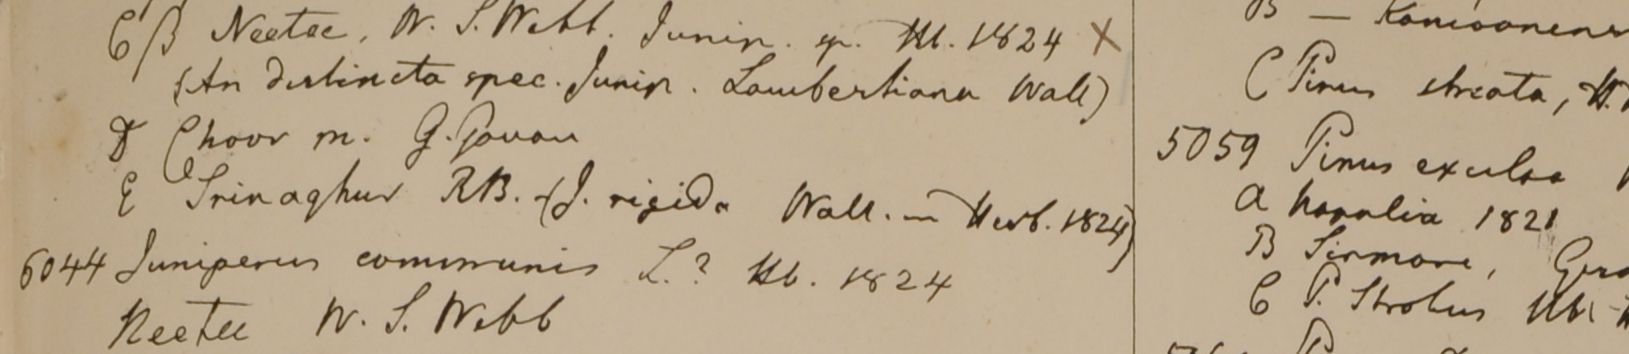 C/β Neetee, W. S. Webb. Junip. sp. Hb. 1824 X
(An distincta spec. Junip. Lambertiana Wall)
D Choor m. G. Govan
E Srinaghur RB. (J. rigida Wall. in Herb. 1824)
6044 Juniperus communis L.? Hb. 1824
Neetee W. S. Webb
B —
C Pinus striata, H.
5059 Pinus excelsa
a Napalia 1821
B Sirmore,
C P. Strobus Hb.